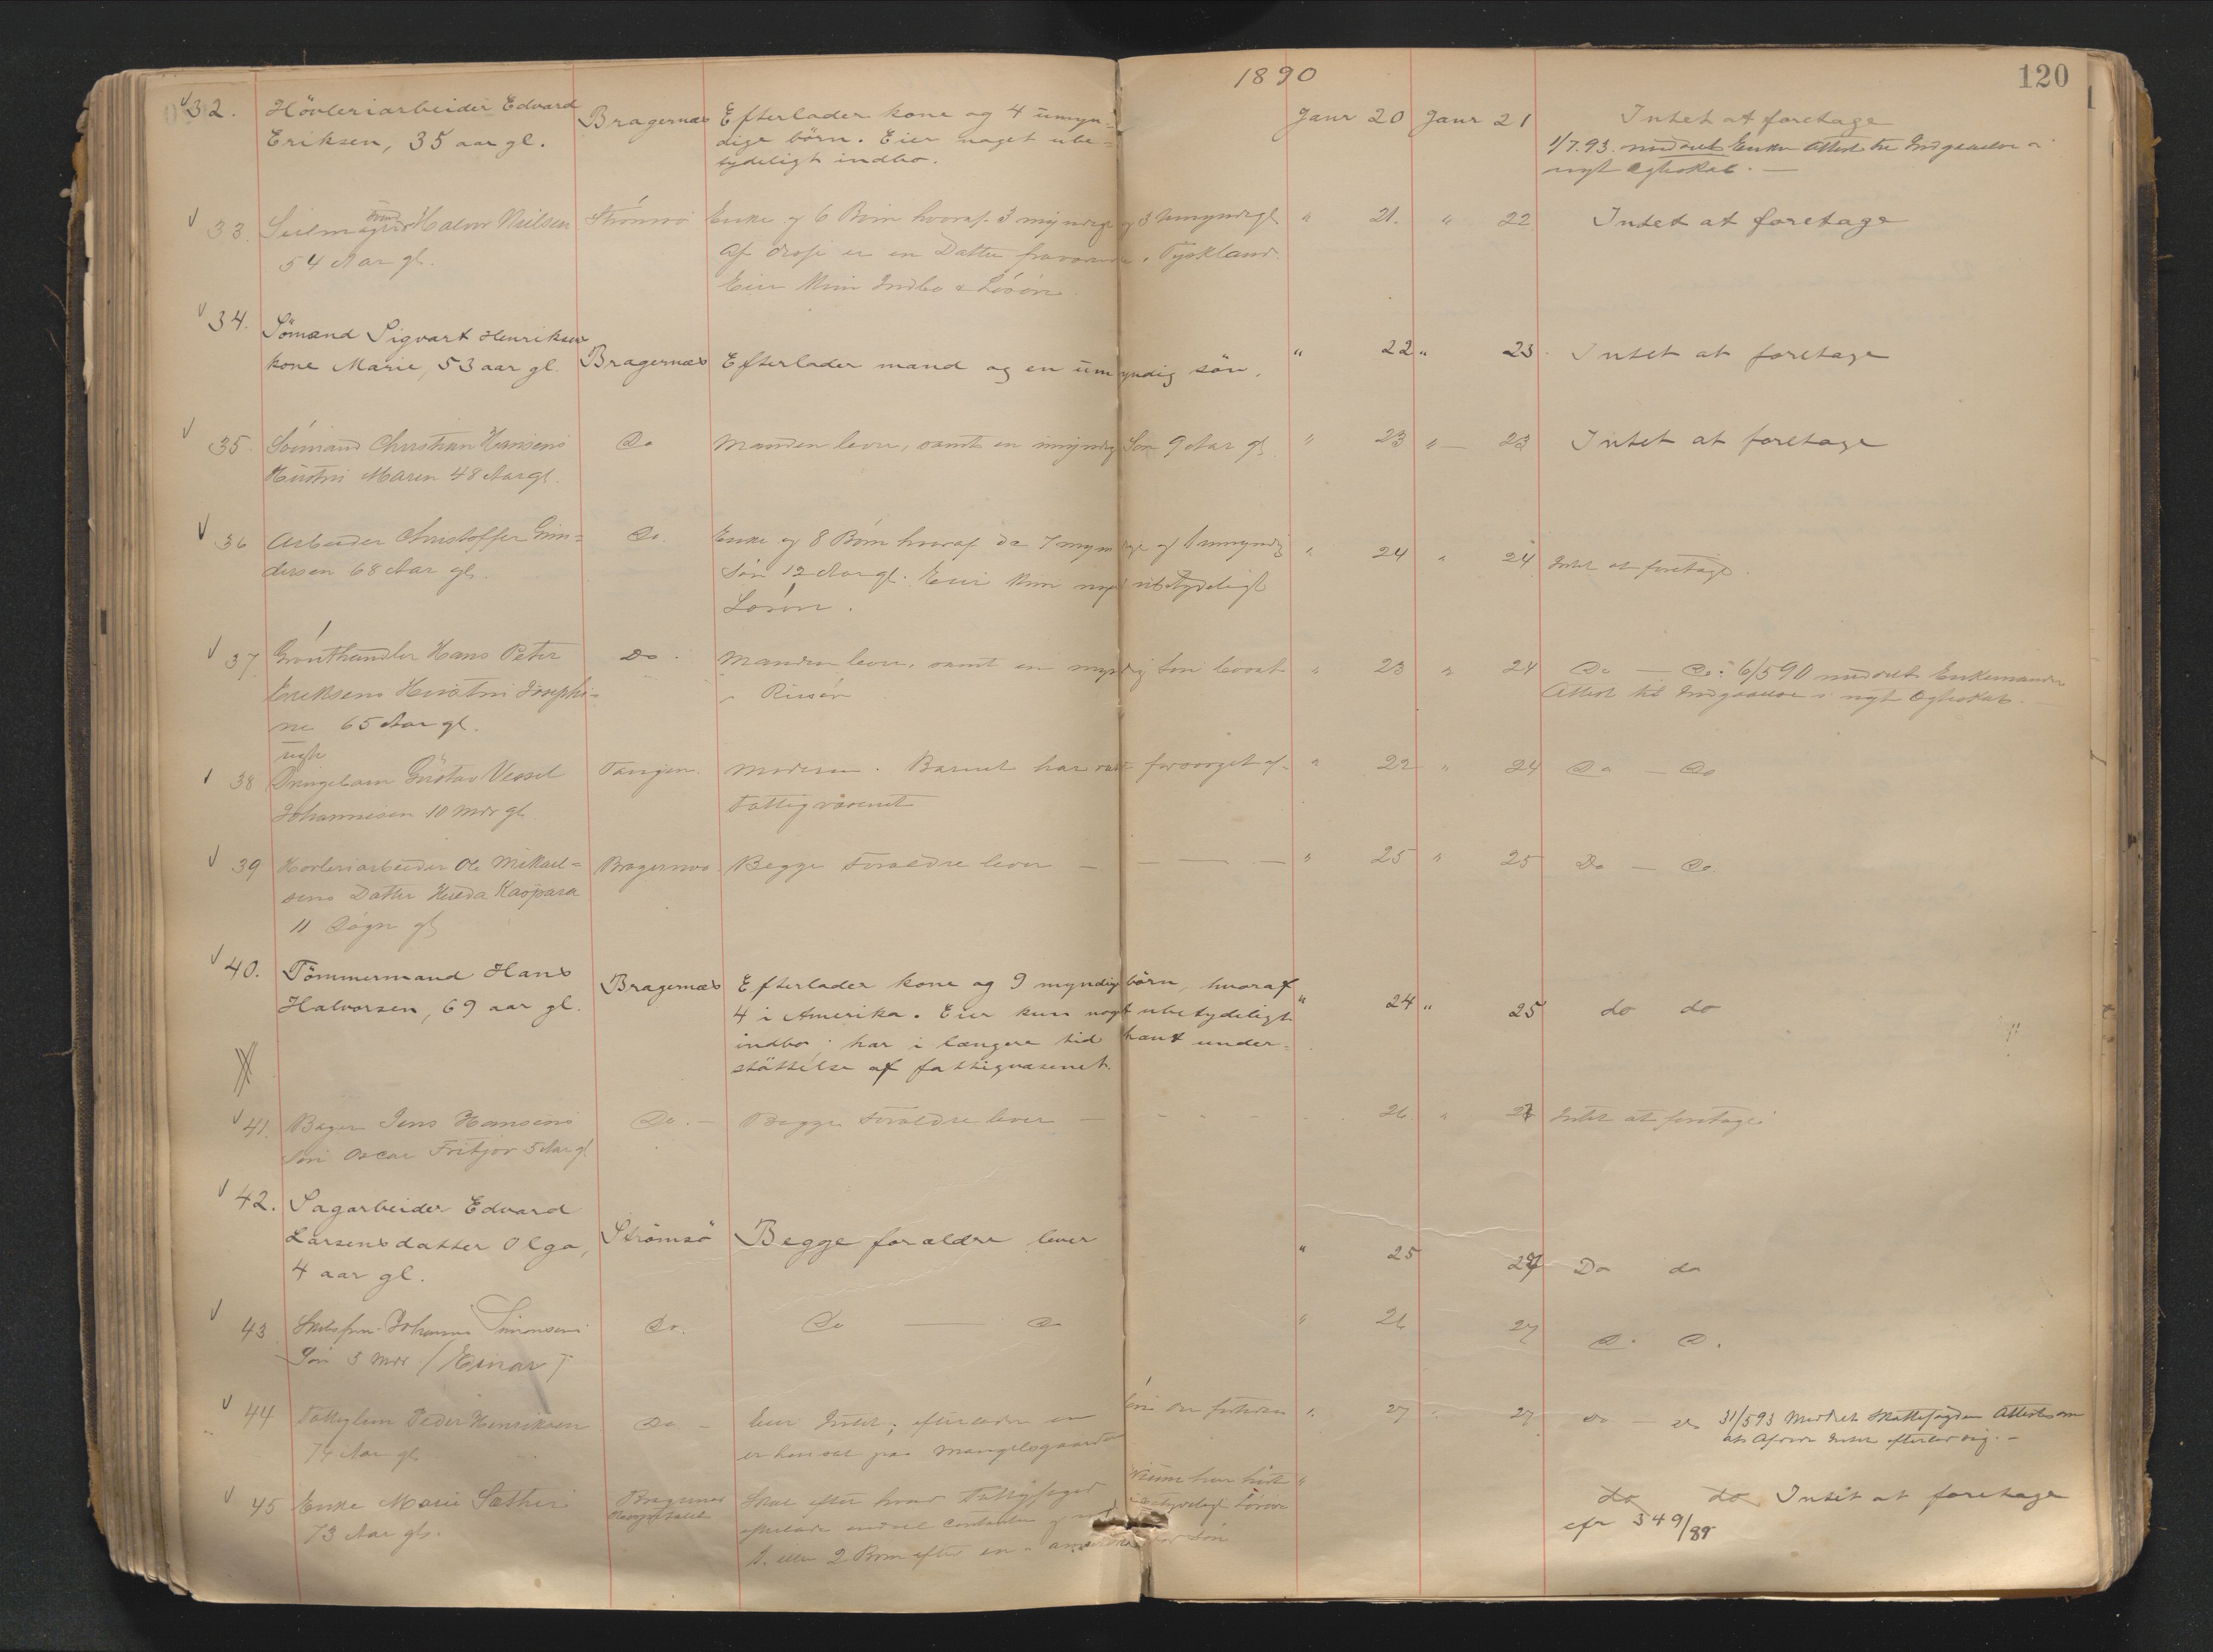 1890
120
32. Hövleriarbeider Edvard
Eriksen, 35 aar gl.
Bragernæs
Efterlader kone og 4 umyn-
dige börn. Eier noget ube-
tydeligt indbo.
Janr 20 Janr 21
Intet at foretage
1/7.93. meddelt Enken Attest til Indgaaelse i
nyt Ægteskab. —
33. Seilmager Halvor Nielsen
54 Aar gl.
Strömsö
Enke og 6 Börn hvoraf 3 myndige og 3 Umyndige
Af disse er en Datter fraværende i Tyskland.
Eier kun Indbo & Lösöre.
" 21. " 22.
Intet at foretage
34. Sömand Sigvart Henriksens
kone Marie, 53 aar gl.
Bragernæs
Efterlader mand og en umyndig sön.
" 22 " 23.
Intet at foretage
35. Sömand Christian Hansens
Hustru Maren 48 Aar gl.
Do
Manden lever, samt en umyndig Sön 9 Aar gl.
" 23 " — 23
Intet at foretage
36 Arbeider Christoffer Gun-
dersen 68 Aar gl.
Do.
Enke og 8 Börn hvoraf de 7 myndige og 1 umyndig
Sön 12 Aar gl. Eier kun noget ubetydeligt
Lösöre.
" 24 " 24
Intet at foretage.
37 Grönthandler Hans Peter
Eriksens Hustru Josephi-
ne 65 Aar gl.
Do.
Manden lever, samt en myndig Sön bosat
i Risör
" 23 " 24
Do — Do. 6/5 90 meddelt Enkemanden
Attest til Indgaaelse i nyt Ægteskab. —
38 uegte
Drengebarn Gustav Vessel
Johannesen 10 Mdr gl.
Tangen.
Moderen. Barnet har været forsörget af
Fattigvæsenet
" 22 " 24
Do — Do
39 Hövleriarbeider Ole Mikael-
sens Datter Hulda Kaspara
11 Dögn gl
Bragernæs.
Begge Forældre lever — — — —
" 25 " 25
Do — Do.
40. Tömmermand Hans
Halvorsen, 69 aar gl.
Bragernæs
Efterlader kone og 9 myndige börn, hvoraf
4 i Amerika. Eier kun noget ubetydeligt
indbo; har i længere tid havt under-
stöttelse af fattigvæsenet.
" 24 " 25
do do
41. Bager Jens Hansens
Sön Oscar Fritjov 5 Aar gl
Do. —
Begge Forældre lever — - - -
26. "
Intet at foretage.
42. Sagarbeider Edvard
Larsens datter Olga,
4 aar gl.
Strömsö
Begge forældre lever
" 25 27
Do do
43 Johannes Simonsens
Sön 3 Mdr (Einar)
Do.
Do — Do
" 26 27
Do. Do.
44 Fattiglem Peder Henriksen
74 Aar gl
Do. —
Eier Intet; efterlader en
er hensat paa Mangelsgaarden
" 27 27
Do — do 31/5 93 Meddelt Skattefogden Attest om
at Afdöde Intet efterlod sig. —
45 Enke Marie Sæther
73 Aar gl.
Bragernæs
Hospital
Skal efter hvad Fattigfoged
efterlade endel Contanter og
1 eller 2 Börn efter en i Sön
"
do do Intet at foretage
cfr 349/89